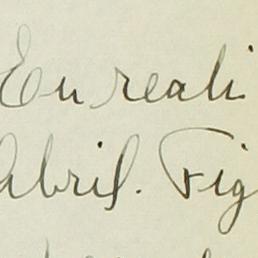 En reali
Abril. Fig